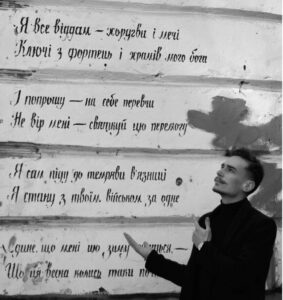 Я все віддам — хоругви і мечі
Ключі з фортець і храмів мого бога
І попрошу — на себе перевши
Не вір мені — святкуй цю перемогу
Я сам піду до темряви в'язниці
Я стану з твоїм військом за одне
Єдине, що мені цю зиму —
Що ця весна колись таки